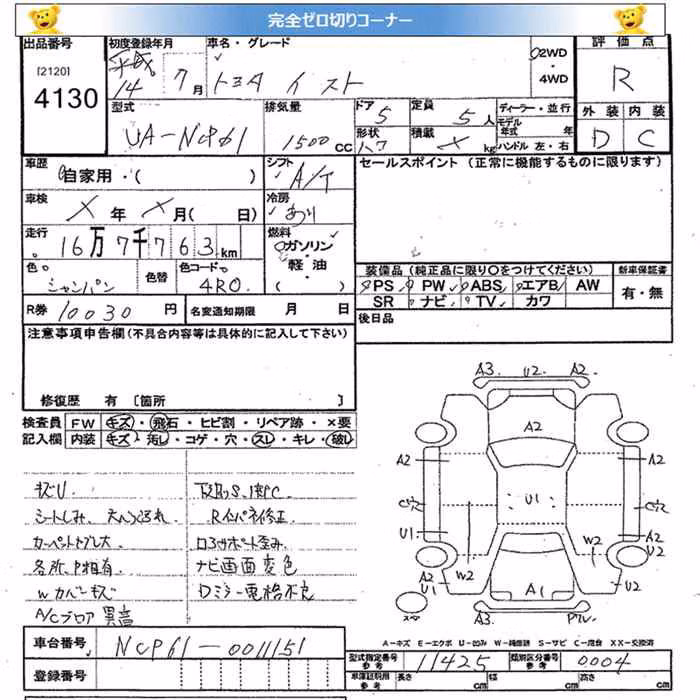 完全ゼロ切りコーナー
出品番号 初度登録年月 車名・グレード 評価点
[2120] 平成 2WD
4130 14 7月 トヨタ イスト ・4WD R
型式 排気量 ドア 5 定員 5人 ディーラー・並行 外装 内装
UA-NCP61 1500cc 形状 積載 × kg モデル年式 年 ハンドル 左・右 D C
車歴 自家用・( ) シフト A/T セールスポイント (正常に機能するものに限ります)
車検 × 年 × 月( 日) 冷房 あり
走行 16万7千763km 燃料 ガソリン・軽油
色 シャンパン 色替 色コード 4R0 装備品 (純正品に限り○をつけてください) 新車保証書
PS PW ABS エアB AW 有・無
R券 10030円 名変通知期限 月 日 SR ナビ TV カワ
注意事項申告欄(不具合内容等は具体的に記入して下さい) 後日品
修復歴 有 [箇所 ]
検査員 FW キズ・飛石・ヒビ割・リペア跡・×要
記入欄 内装 キズ・汚し・コゲ・穴・スレ・キレ・破し
A3 U2 A2
A2
A2 A2
キズU
シートしみ
U1
ナビ画面変色
U1 A2
W2 W2 U2
A2 U1 A1 U2
A/Cブロア異音
A3
A-キズ E-エクボ W-補修跡 S-サビ C-腐食 XX-交換済
車台番号 NCP61-0011151
型式指定番号 参考 11425 類別区分番号 参考 0004
登録番号 車庫証明用 参考 長さ cm 幅 cm 高さ cm